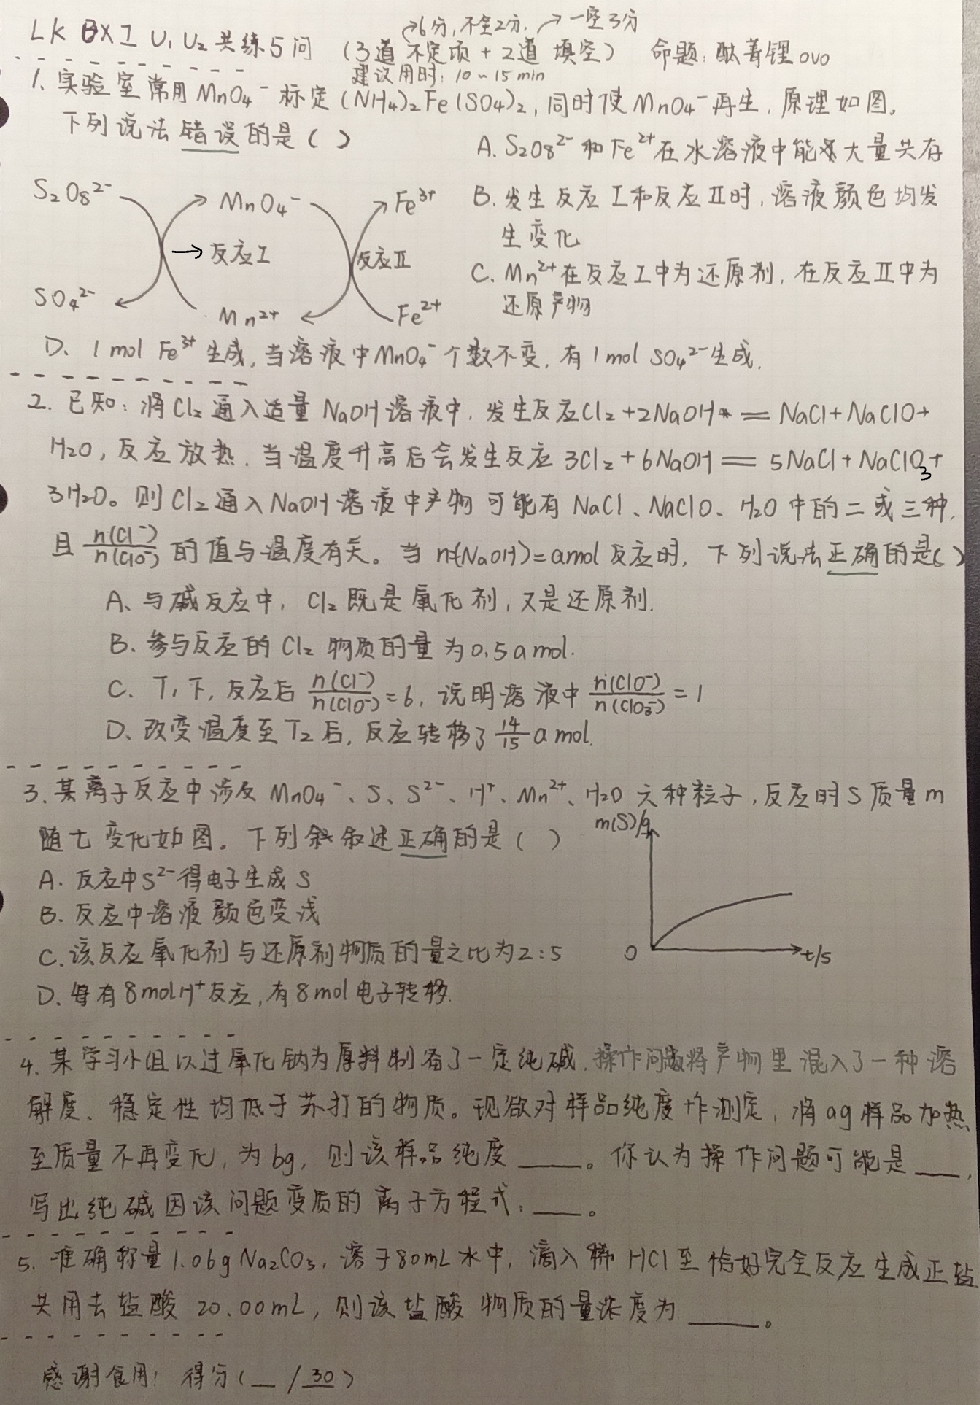 LK BX1 U₁U₂共练5问 (3道不定项+2道填空) 命题:酞菁锂ovo
6分,不全2分. 一空3分
建议用时:10~15min
1.实验室常用MnO₄⁻标定(NH₄)₂Fe(SO₄)₂,同时使MnO₄⁻再生.原理如图.
下列说法错误的是( )
A.S₂O₈²⁻和Fe²⁺在水溶液中能大量共存
B.发生反应I和反应II时,溶液颜色均发
生变化
C.Mn²⁺在反应I中为还原剂,在反应II中为
还原产物
S₂O₈²⁻ MnO₄⁻ Fe³⁺
反应I 反应II
SO₄²⁻ Mn²⁺ Fe²⁺
D. 1mol Fe³⁺生成,当溶液中MnO₄⁻个数不变,有1mol SO₄²⁻生成.
2.已知:将Cl₂通入适量NaOH溶液中,发生反应Cl₂+2NaOH=NaCl+NaClO+
H₂O,反应放热.当温度升高后会发生反应3Cl₂+6NaOH=5NaCl+NaClO₃+
3H₂O。则Cl₂通入NaOH溶液中产物可能有NaCl、NaClO、H₂O中的二或三种,
且n(Cl⁻)/n(ClO⁻)的值与温度有关。当n(NaOH)=amol反应时,下列说法正确的是( )
A、与碱反应中,Cl₂既是氧化剂,又是还原剂.
B.参与反应的Cl₂物质的量为0.5amol.
C.T₁下,反应后n(Cl⁻)/n(ClO⁻)=6,说明溶液中n(ClO⁻)/n(ClO₃⁻)=1
D、改变温度至T₂后,反应转移了14/15 amol.
3.某离子反应中涉及MnO₄⁻、S、S²⁻、H⁺、Mn²⁺、H₂O六种粒子,反应时S质量m
随t变化如图,下列叙述正确的是( )
m(S)/g
A.反应中S²⁻得电子生成S
B.反应中溶液颜色变浅
C.该反应氧化剂与还原剂物质的量之比为2:5
D、每有8molH⁺反应,有8mol电子转移.
0 t/s
4.某学习小组以过氧化钠为原料制备了一定纯碱.操作问题将产物里混入了一种溶
解度、稳定性均低于苏打的物质。现欲对样品纯度作测定,将ag样品加热
至质量不再变化,为bg,则该样品纯度____。你认为操作问题可能是___,
写出纯碱因该问题变质的离子方程式:___。
5.准确称量1.06g Na₂CO₃,溶于80mL水中,滴入稀HCl至恰好完全反应生成正盐
共用去盐酸20.00mL,则该盐酸物质的量浓度为____。
感谢食用! 得分(__/30)